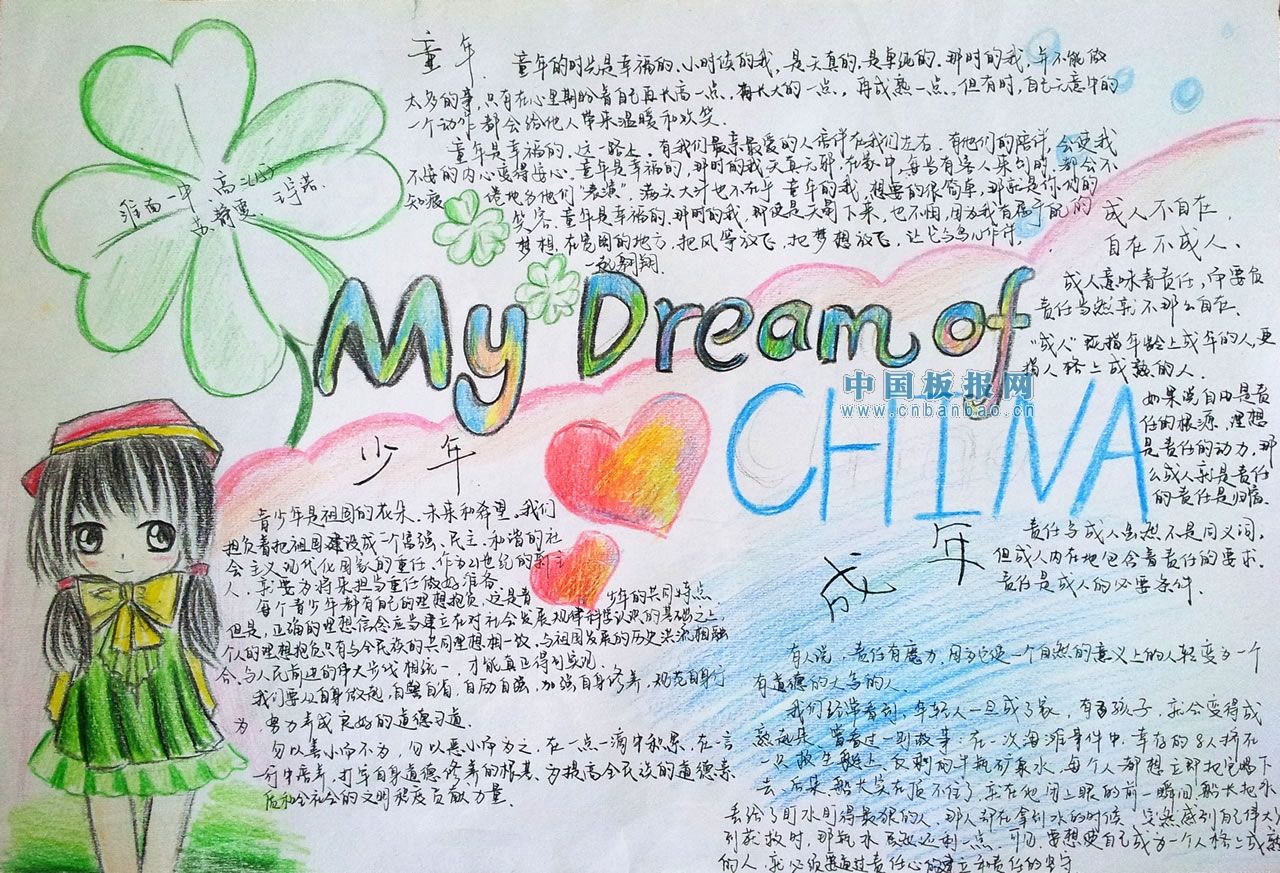 童年
童年的时光是幸福的.小时候的我,是天真的.是单纯的.那时的我,年不能做
太多的事,只有在心里期盼着自己再长高一点,再长大的一点,再成熟一点.但有时,自己无意中的
一个动作都会给他人带来温暖和欢笑.
童年是幸福的.这一路上,有我们最亲最爱的人陪伴在我们左右.有他们的陪伴,会使我
不安的内心变得安心.童年是幸福的,那时的我天真无邪.在家中,每当有客人来到时,都会不
知疲倦地为他们"表演".满头大汗也不在乎.童年的我,想要的很简单,那就是你们的
笑容.童年是幸福的.那时的我,即使是天塌下来,也不怕,因为我有属于我的
梦想.在宽阔的地方,把风筝放飞,把梦想放飞,让它与鸟儿作伴,
一起翱翔.
淮南一中 高二(15)
苏静雯
My Dream of
CHINA
中国板报网
www.cnbanbao.cn
成人不自在,
自在不成人.
成人意味着责任,而要负
责任当然就不那么自在.
"成人"既指年龄上成年的人,更
指人格上成熟的人.
如果说自由是责
任的根源,理想
是责任的动力,那
么成人就是责任
的责任是归宿.
少年
青少年是祖国的花朵.未来和希望.我们
担负着把祖国建设成一个富强、民主、和谐的社
会主义现代化国家的重任.作为21世纪的新主
人,就要为将来担当重任做好准备.
每个青少年都有自己的理想抱负,这是青少年的共同特点.
但是,正确的理想信念应当建立在对社会发展规律科学认识的基础之上.
个人的理想抱负只有与全民族的共同理想相一致,与祖国发展的历史洪流相融
合,与人民前进的伟大步伐相统一,才能真正得到实现.
我们要从自身做起,自警自省,自励自强,加强自身修养,规范自身行
为,努力养成良好的道德习惯.
勿以善小而不为,勿以恶小而为之.在一点一滴中积累,在言
行中培养,打牢自身道德修养的根基,为提高全民族的道德素
质和全社会的文明程度贡献力量.
成年
责任与成人虽然不是同义词,
但成人内在地包含着责任的要求.
责任是成人的必要条件.
有人说,责任有魔力,因为它使一个自然的意义上的人转变为一个
有道德的大写的人.
我们经常看到,年轻人一旦成了家,有了孩子,就会变得成
熟起来.曾看过一则故事:在一次海难事件中,幸存的8人挤在
一只救生艇上.仅剩的半瓶矿泉水,每个人都想立即把它喝下
去.后来船长实在顶不住了,就在他闭上眼的前一瞬间,船长把水
丢给了盯水盯得最狠的人,那人却在拿到水的时候,突然感到自己伟大
到获救时,那瓶水还剩一点.可见,要想使自己成为一个人格上成熟
的人,就必须要通过责任心的建立和责任的坚守